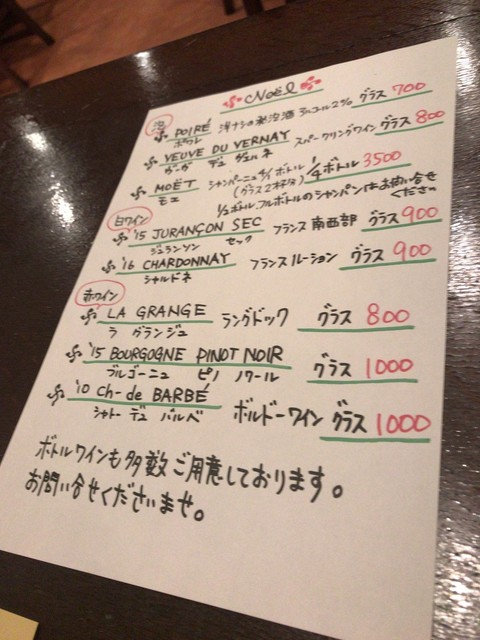 Noël
泡
POIRÉ 洋ナシの発泡酒 アルコール2% グラス 700
ポワレ
VEUVE DU VERNAY スパークリングワイン グラス 800
ヴーヴ デュ ヴェルネ
MOËT シャンパーニュ 1/4ボトル 1/4ボトル 3500
モエ (グラス2杯分)
1/2ボトル、フルボトルのシャンパンはお問い合せください
白ワイン
'15 JURANÇON SEC フランス 南西部 グラス 900
ジュランソン セック
'16 CHARDONNAY フランス ルーション グラス 900
シャルドネ
赤ワイン
LA GRANGE ラングドック グラス 800
ラ グランジュ
'15 BOURGOGNE PINOT NOIR グラス 1000
ブルゴーニュ ピノ ノワール
'10 Ch- de BARBÉ ボルドーワイン グラス 1000
シャトー デュ バルベ
ボトルワインも多数ご用意しております。
お問い合せくださいませ。